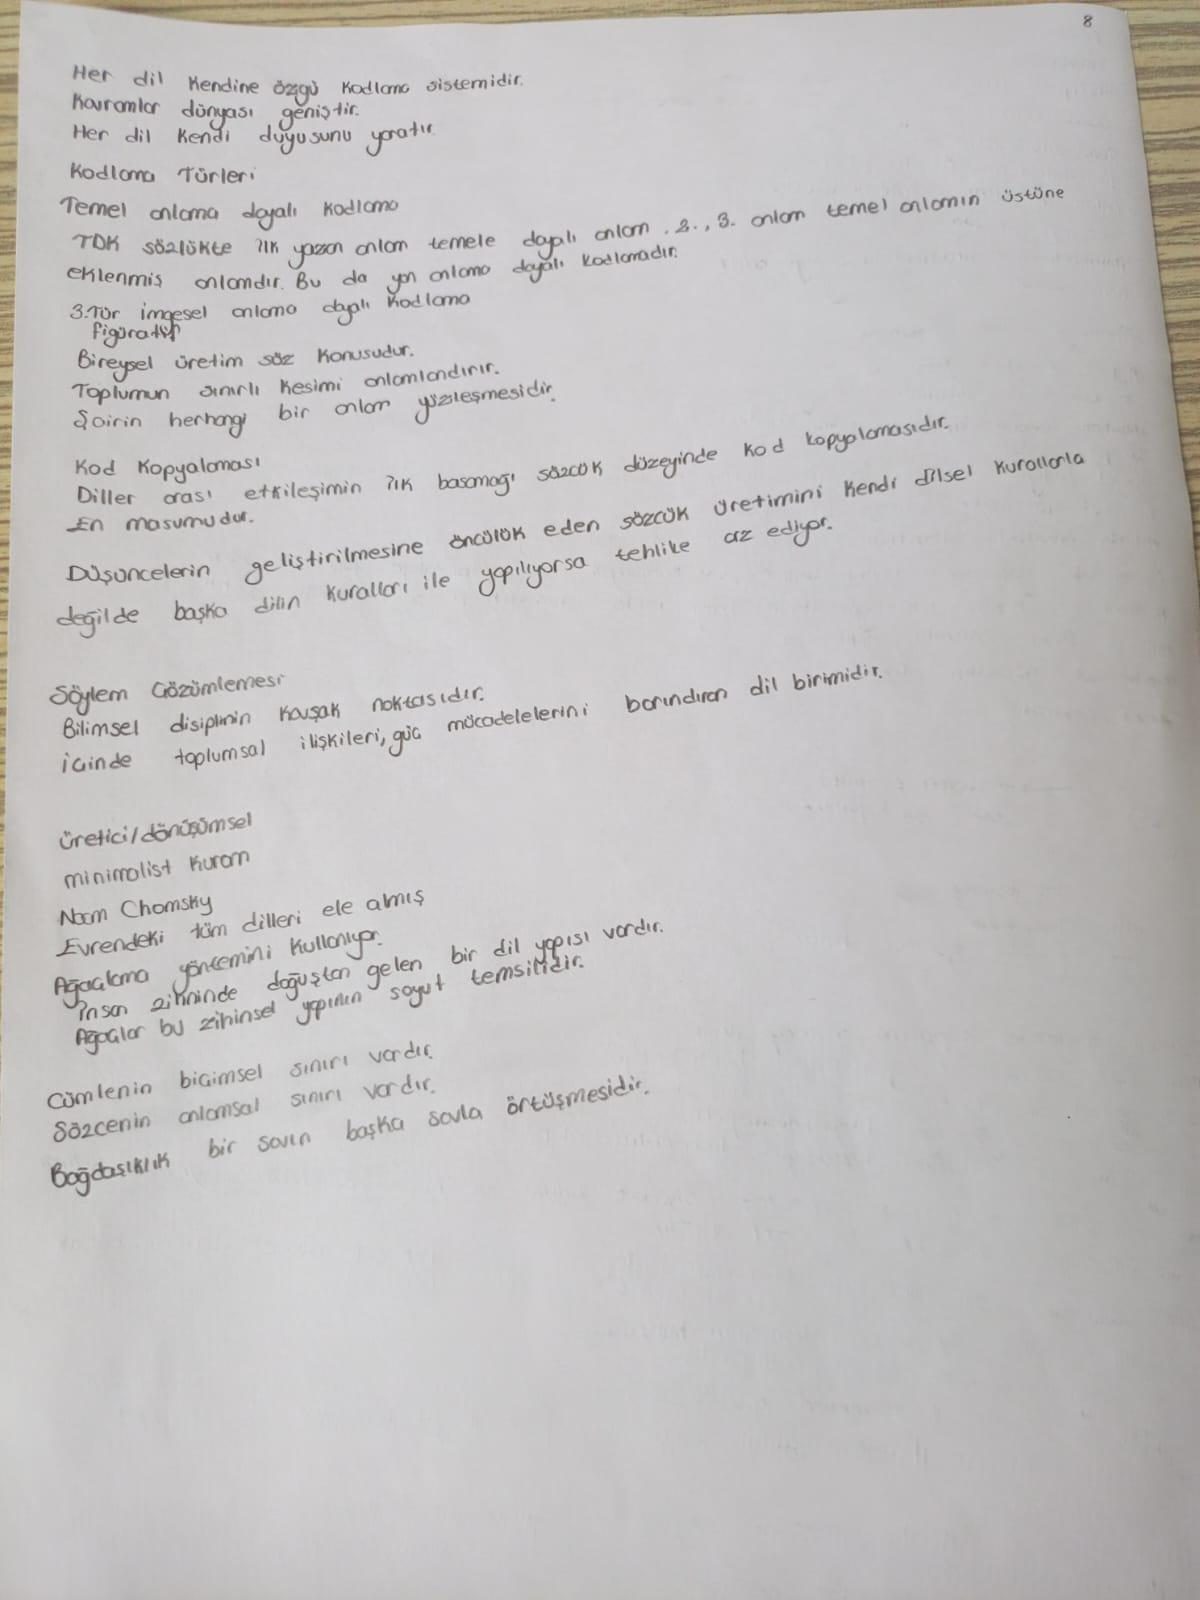 8
Her dil kendine özgü kodlama sistemidir.
Kavramlar dünyası geniştir.
Her dil kendi duyusunu yaratır.
Kodlama Türleri
Temel anlama dayalı kodlama
TDK sözlükte ilk yazan anlam temele dayalı anlam. 2., 3. anlam temel anlamın üstüne
eklenmiş anlamdır. Bu da yan anlama dayalı kodlamadır.
3.Tür imgesel anlama dayalı kodlama
figüratif
Bireysel üretim söz konusudur.
Toplumun sınırlı kesimi anlamlandırır.
Şairin herhangi bir anlam yüzleşmesidir.
Kod Kopyalaması
Diller arası etkileşimin ilk basamağı sözcük düzeyinde kod kopyalamasıdır.
En masumudur.
Düşüncelerin geliştirilmesine öncülük eden sözcük üretimini kendi dilsel kurallarla
değilde başka dilin kuralları ile yapılıyorsa tehlike arz ediyor.
Söylem Çözümlemesi
Bilimsel disiplinin kavşak noktasıdır.
İçinde toplumsal ilişkileri, güç mücadelelerini barındıran dil birimidir.
Üretici/dönüşümsel
minimalist kuram
Noam Chomsky
Evrendeki tüm dilleri ele almış
Ağaçlama yöntemini kullanıyor.
İnsan zihninde doğuştan gelen bir dil yapısı vardır.
Ağaçlar bu zihinsel yapının soyut temsilidir.
Cümlenin biçimsel sınırı vardır.
Sözcenin anlamsal sınırı vardır.
Bağdaşıklık bir savın başka savla örtüşmesidir.